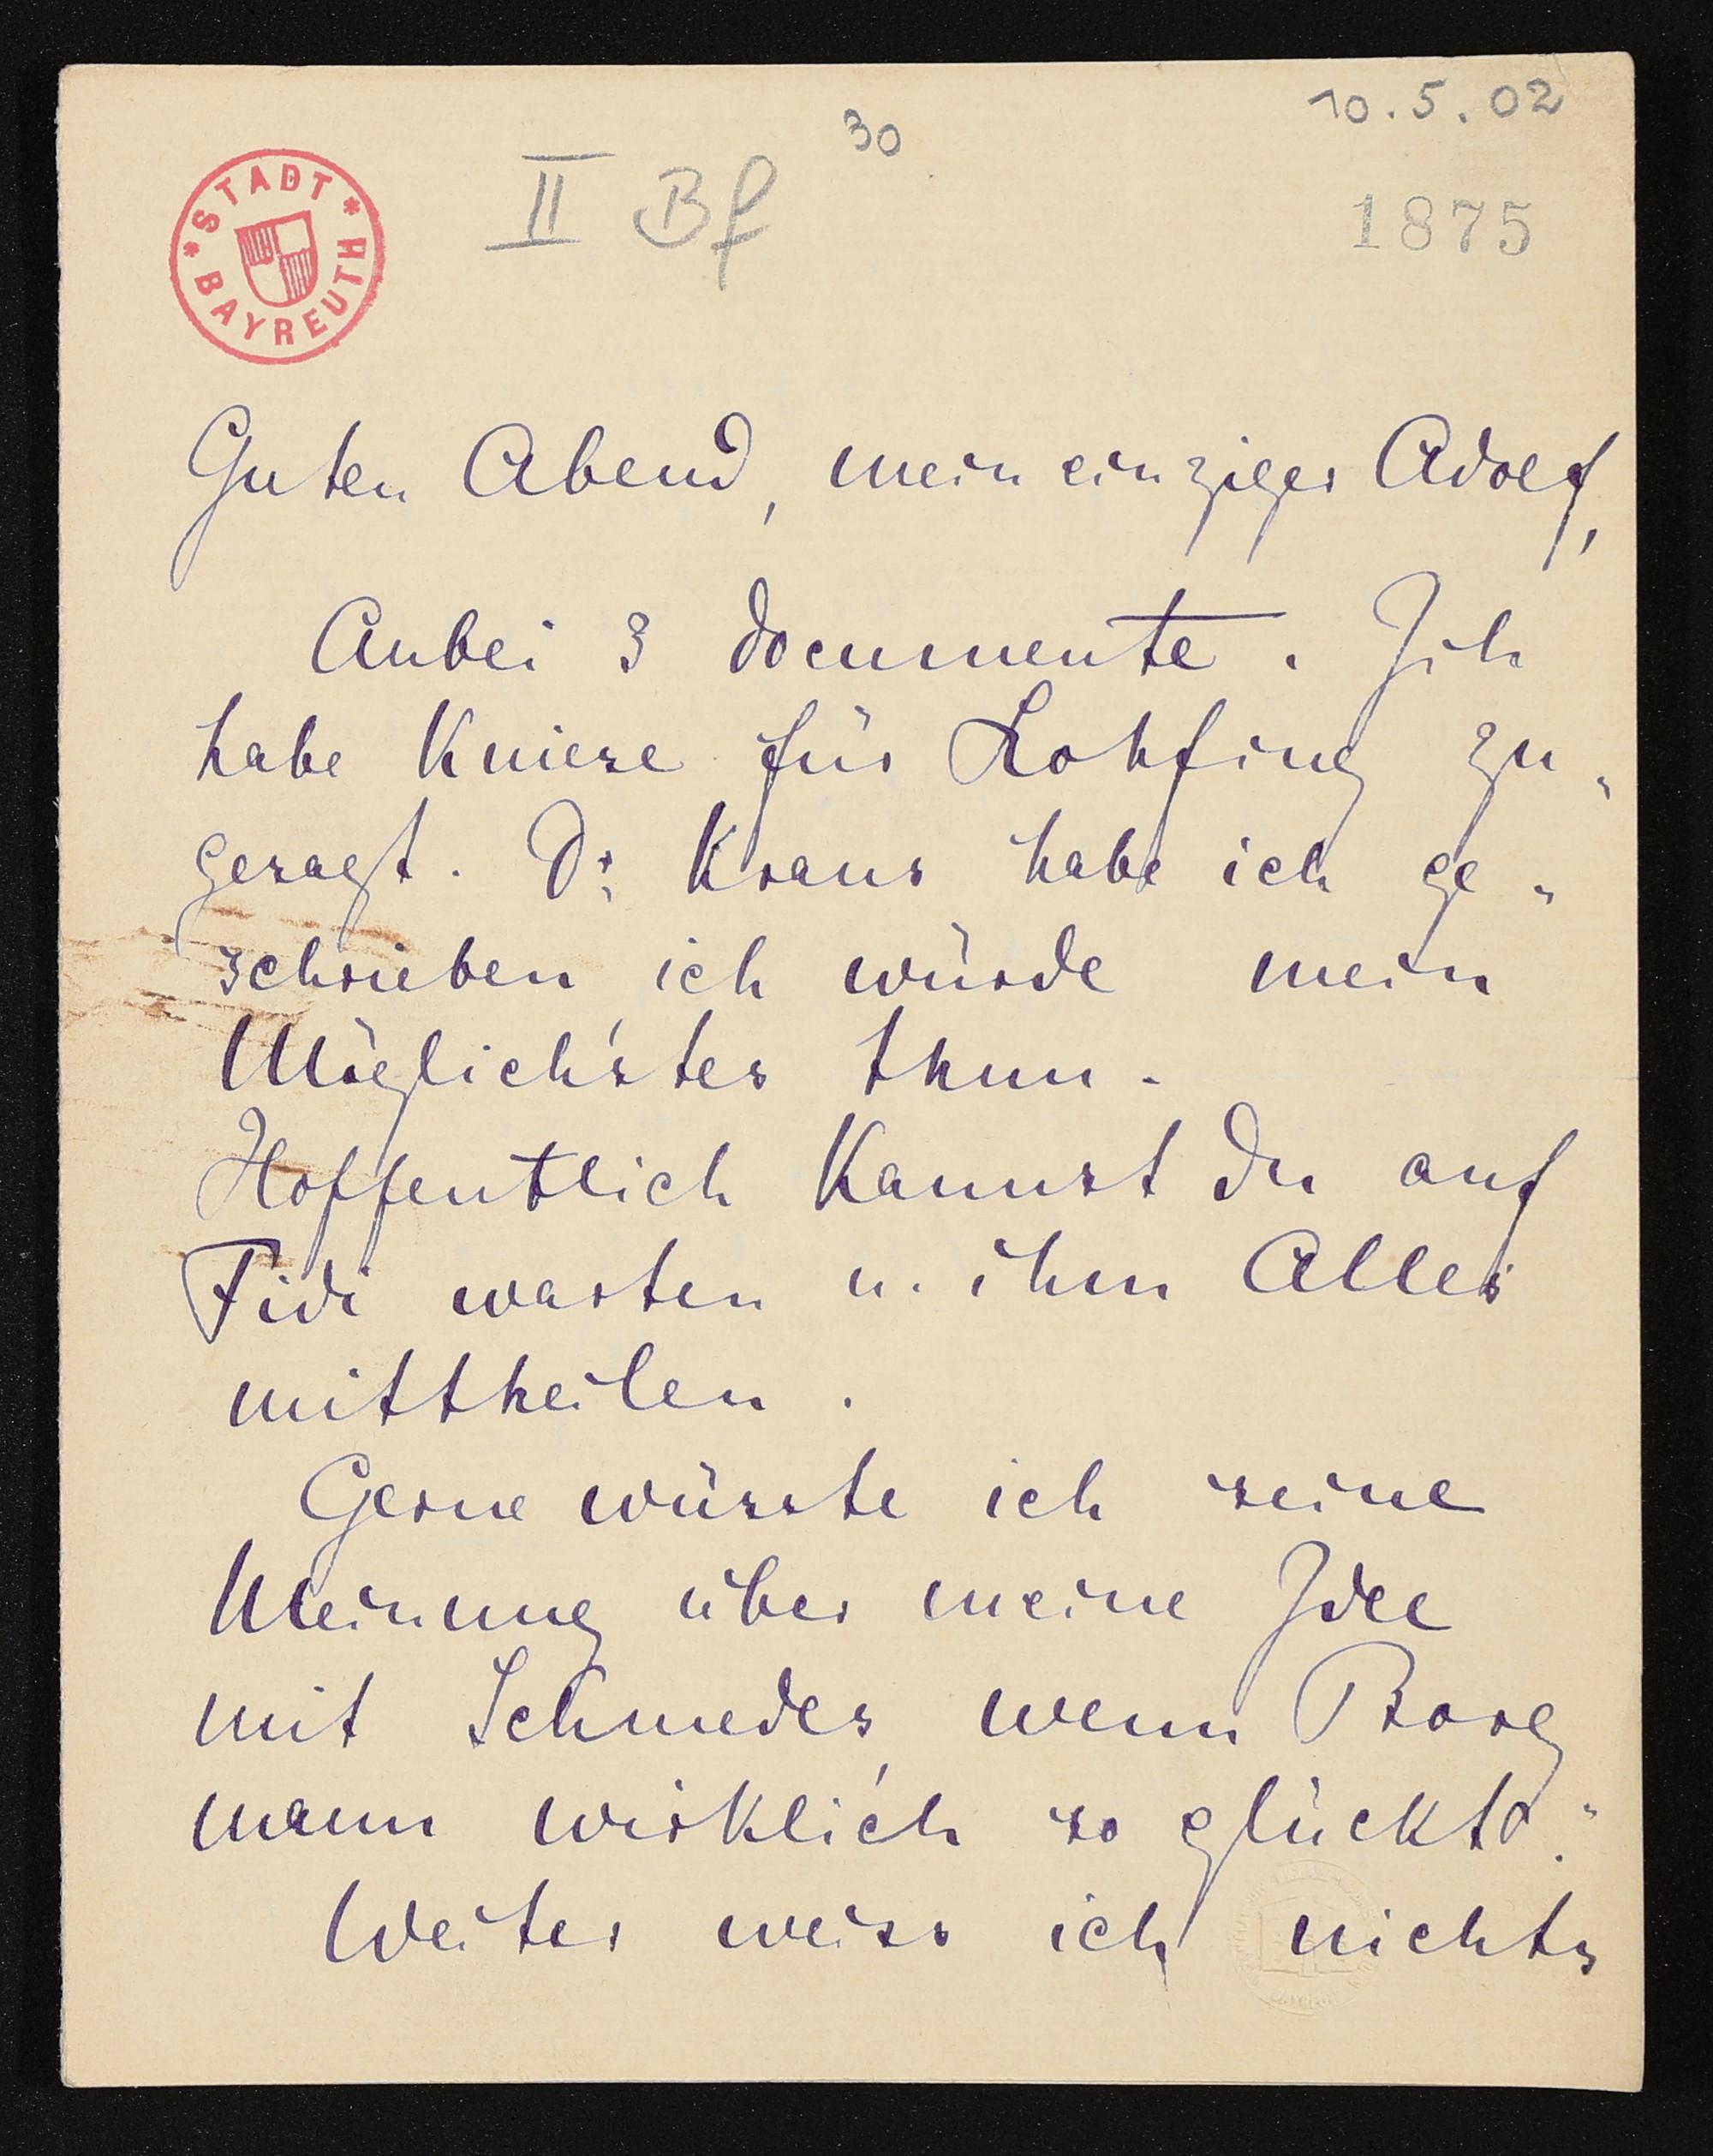 10.5.02
30
II Bf
1875
STADT BAYREUTH
Guten Abend, mein einziger Adolf,
Anbei 3 Documente. Ich
habe Kniese für Lohfing zu„
gesagt. Dr. Kraus habe ich ge„
schrieben ich würde mein
Möglichstes thun.
Hoffentlich kannst Du auf
Fidi warten u. ihm Alles
mittheilen.
Gerne wüsste ich seine
Meinung über meine Idee
mit Schmedes, wenn Borg
mann wirklich so glückt.
Weiter weiss ich nichts